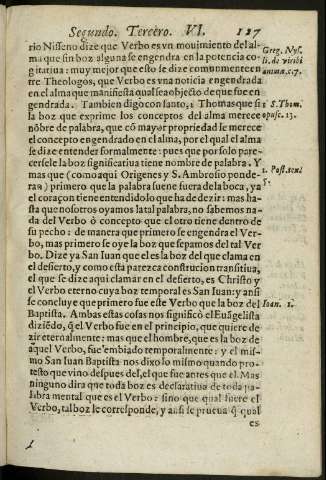 Segundo. Tercero. VI. 127
rio Nisseno dize que Verbo es vn mouimiento del al-
ma que sin boz alguna se engendra en la potencia co-
gitatiua: muy mejor que esto se dize comunmente en
tre Theologos, que Verbo es vna noticia engendrada
en el alma que manifiesta qual sea objecto de que fue en
gendrada. Tambien digo con santo Thomas que si
la boz que exprime los conceptos del alma merece
nõbre de palabra, que cõ mayor propriedad le merece
el concepto engendrado en el alma, por el qual el alma
se dize entender formalmente: pues que por solo pare-
cersele la boz significatiua tiene nombre de palabra. Y
mas que (como aqui Origenes y S. Ambrosio ponde-
ran) primero que la palabra suene fuera de la boca, ya
el coraçon tiene entendido lo que ha de dezir: mas ha-
sta que nosotros oyamos la tal palabra, no sabemos na-
da del Verbo ò concepto que el otro tiene dentro de
su pecho: de manera que primero se engendra el Ver-
bo, mas primero se oye la boz que sepamos del tal Ver
bo. Dize ya San Iuan que el es la boz del que clama en
el desierto, y como esta parezca construcion transitiua,
el que se dize aqui clamar en el desierto, es Christo y
el Verbo eterno cuya boz temporal es San Iuan: y ansi
se concluye que primero fue este Verbo que la boz del
Baptista. Ambas estas cosas nos significò el Euãgelista
diziẽdo, q̃ el Verbo fue en el principio, que quiere de-
zir eternalmente: mas que el hombre, que es la boz de
aquel Verbo, fue embiado temporalmente: y el mis-
mo San Iuan Baptista nos dixo lo mismo quando pro-
testo que vino despues del, el que fue antes que el. Mas
ninguno dira que toda boz es declaratiua de toda pa-
labra mental que es el Verbo: sino que qual fuere el
Verbo, tal boz le corresponde, y ansi se prueua q̃ qual
es
Greg. Nys.
li. de viribi
animæ.c.7.
S. Thom.
opusc. 13.
1. Post.
Ioan. 1.